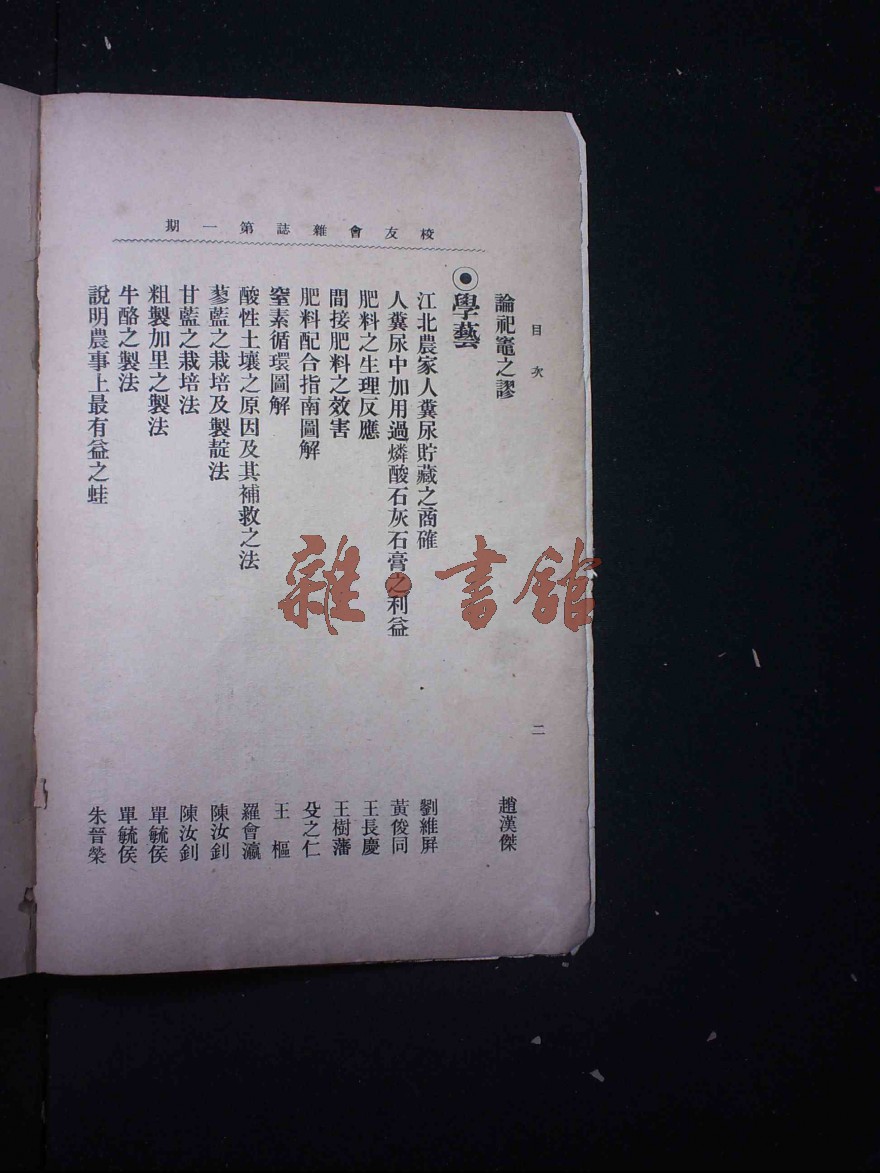 校友會雜誌第一期
目次 二
論祀竈之謬 趙漢傑
◉學藝
江北農家人糞尿貯藏之商確 劉維屏
人糞尿中加用過燐酸石灰石膏之利益 黃俊同
肥料之生理反應 王長慶
間接肥料之效害 王樹藩
肥料配合指南圖解 殳之仁
窒素循環圖解 王樞
酸性土壤之原因及其補救之法 羅會瀛
蓼藍之栽培及製靛法 陳汝釗
甘藍之栽培法 陳汝釗
粗製加里之製法 單毓俟
牛酪之製法 單毓俟
說明農事上最有益之蛙 朱晉榮
雜·書館